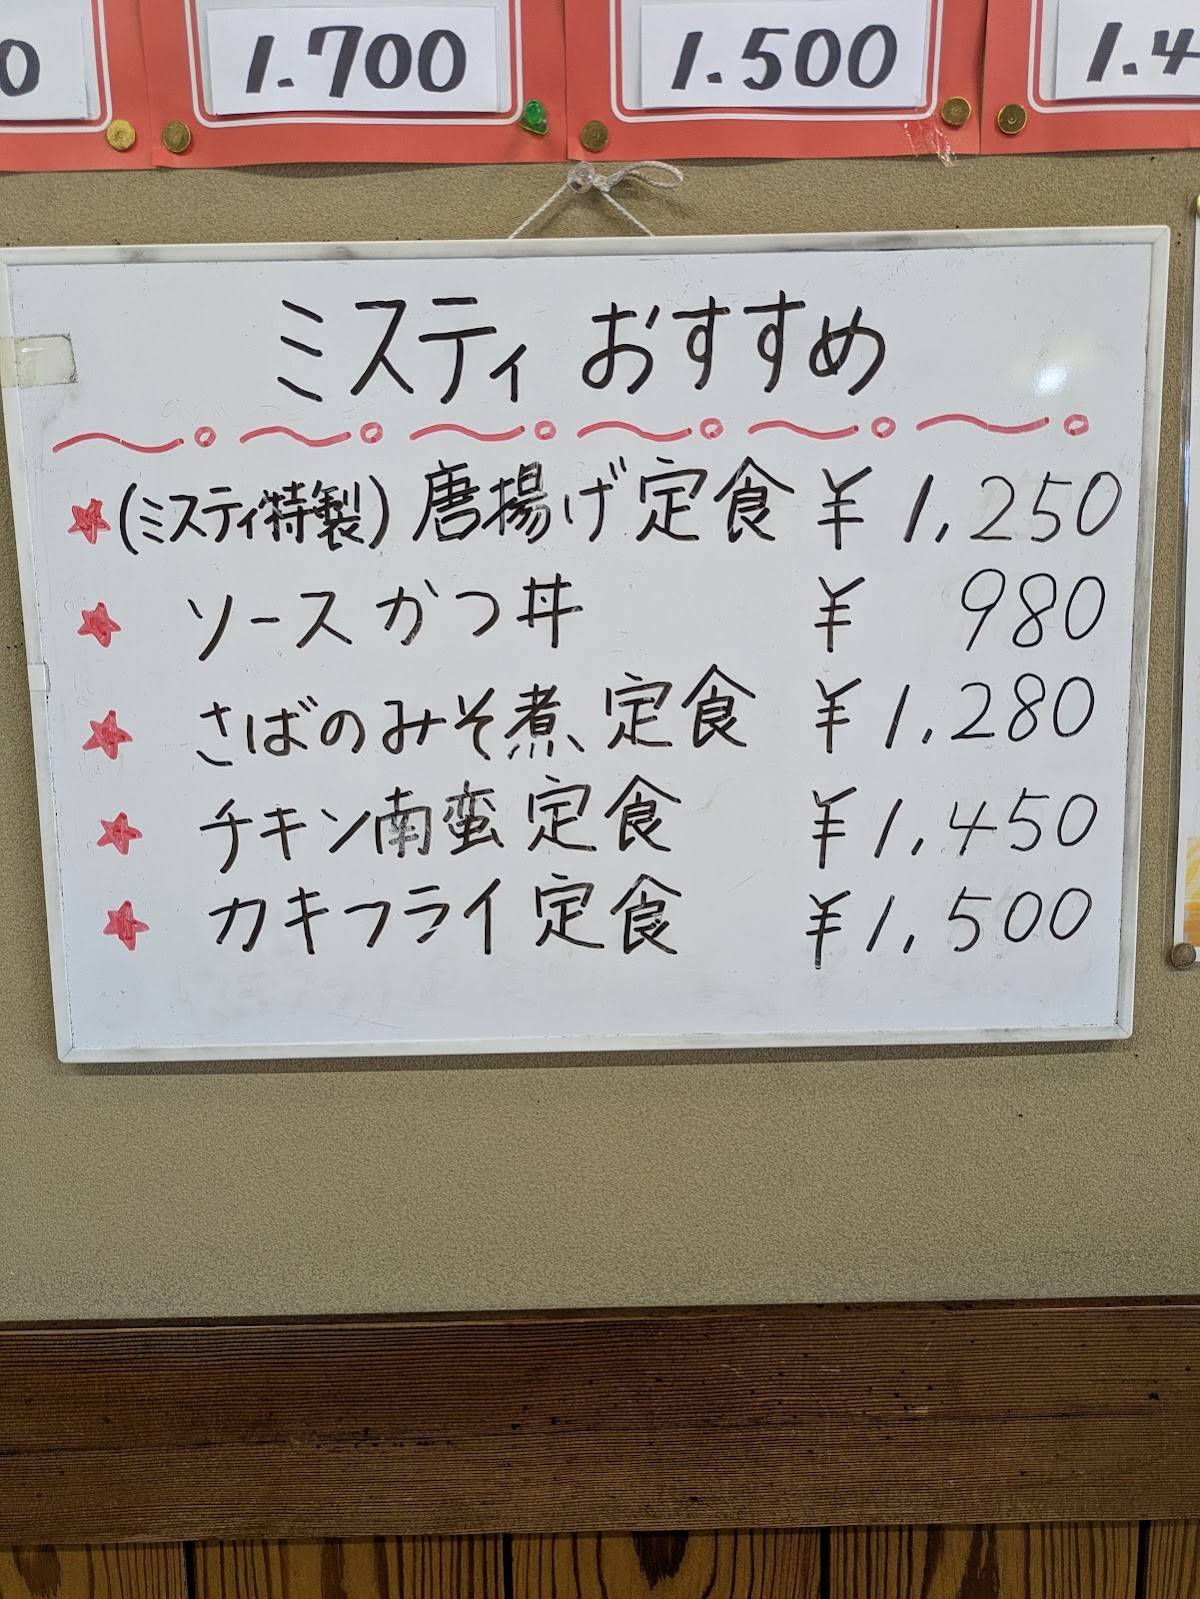 1.700
1.500
ミスティ おすすめ
(ミスティ特製) 唐揚げ定食 ¥1,250
ソースかつ丼 ¥ 980
さばのみそ煮定食 ¥1,280
チキン南蛮定食 ¥1,450
カキフライ定食 ¥1,500